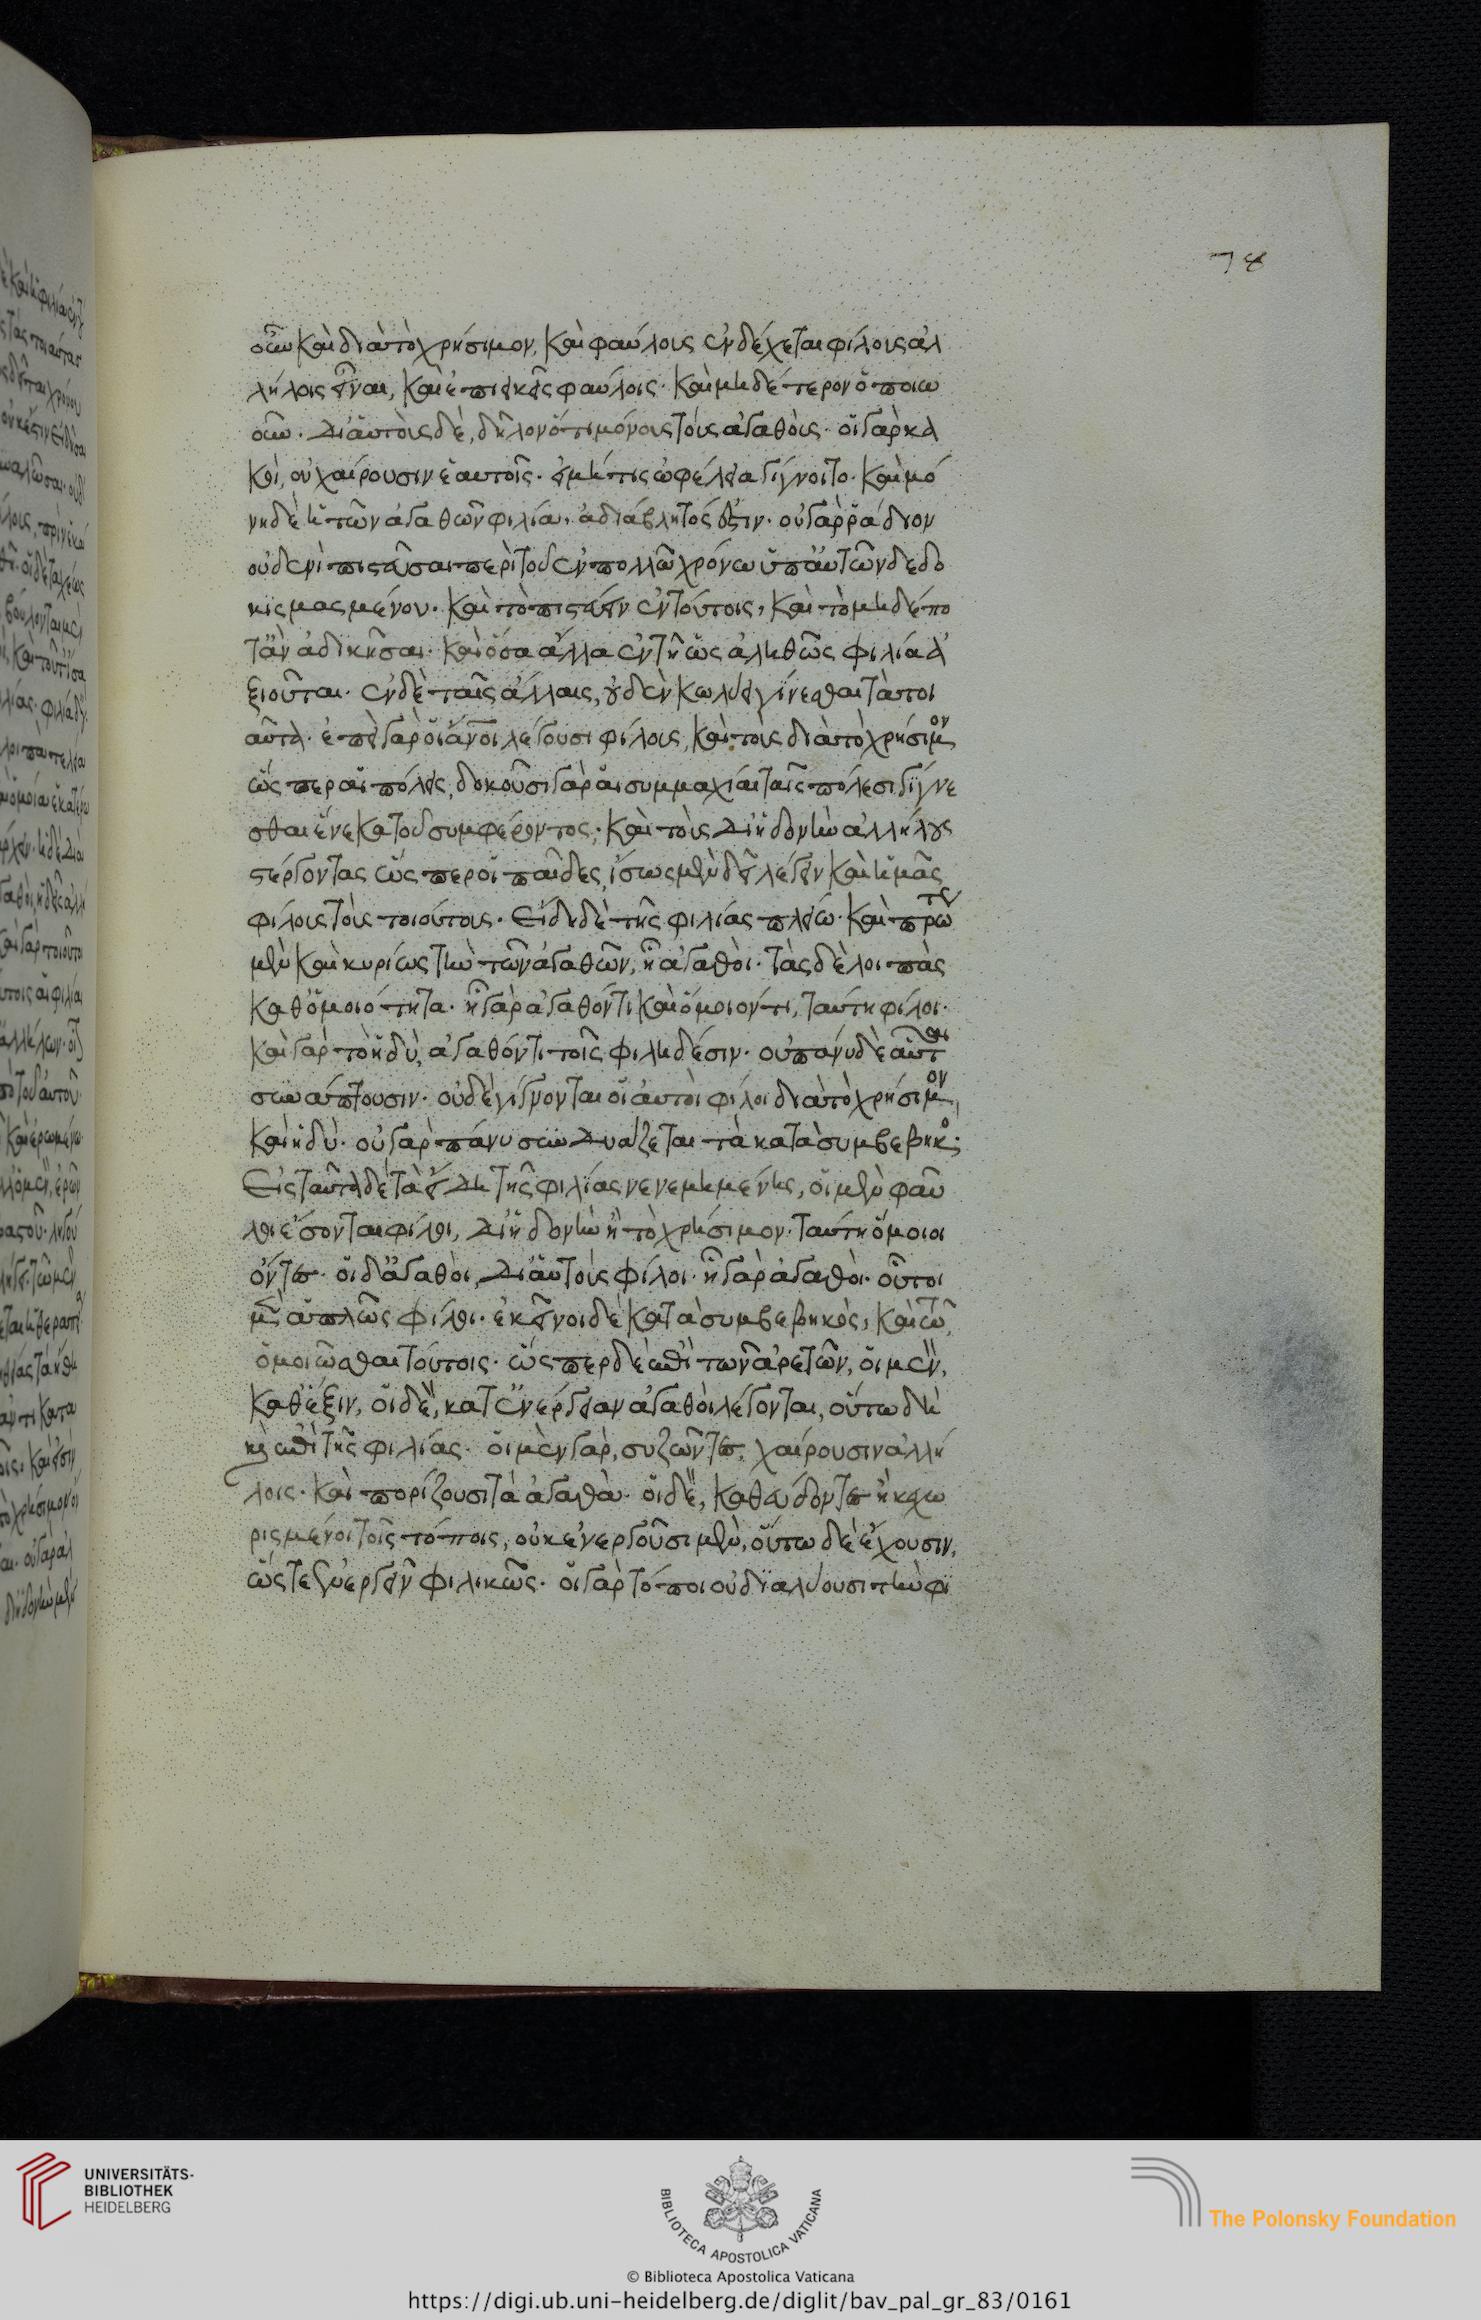 78
οὖν καὶ διὰ τὸ χρήσιμον, καὶ φαύλοις ἐνδέχεται φίλοις ἀλ
λήλοις εἶναι, καὶ ἐπιεικεῖς φαύλοις· καὶ μηδέτερον ὁποιω
οῦν. δι' αὑτοὺς δὲ, δῆλον ὅτι μόνους τοὺς ἀγαθούς· οἱ γὰρ κα
κοὶ, οὐ χαίρουσιν ἑαυτοῖς· εἰ μή τις ὠφέλεια γίγνοιτο. καὶ μό
νη δὲ ἡ τῶν ἀγαθῶν φιλία, ἀδιάβλητός ἐστιν· οὐ γὰρ ῥάδιον
οὐδενὶ πιστεῦσαι περὶ τοῦ ἐν πολλῶ χρόνω ὑπ' αὐτῶν δεδο
κισμασμένου. καὶ τὸ πιστεύειν ἐν τούτοις, καὶ τὸ μηδέπο
τ' ἂν ἀδικῆσαι· καὶ ὅσα ἄλλα ἐν τῆ ὡς ἀληθῶς φιλία ἀ
ξιοῦται. ἐν δὲ ταῖς ἄλλαις, οὐδὲν κωλύει γίνεσθαι τὰ τοι
αῦτα. ἐπεὶ γὰρ οἱ ἄνοι λέγουσι φίλους, καὶ τοὺς διὰ τὸ χρήσιμον
ὥσπερ αἱ πόλεις, δοκοῦσι γὰρ αἱ συμμαχίαι ταῖς πόλεσι γίγνε
σθαι ἕνεκα τοῦ συμφέροντος· καὶ τοὺς δι' ἡδονὴν ἀλλήλους
στέργοντας ὥσπερ οἱ παῖδες, ἴσως μὲν δεῖ λέγειν καὶ ἡμᾶς
φίλους τοὺς τοιούτους. εἴδη δὲ τῆς φιλίας πλείω. καὶ πρώτως
μὲν καὶ κυρίως τὴν τῶν ἀγαθῶν, ἧ ἀγαθοί. τὰς δὲ λοιπὰς
καθ' ὁμοιότητα. ἧ γὰρ ἀγαθόν τι καὶ ὅμοιόν τι, ταύτη φίλοι.
καὶ γὰρ τὸ ἡδὺ, ἀγαθόν τι τοῖς φιληδέσιν. οὐ πάνυ δὲ αὗται
συνάπτουσιν. οὐδὲ γίγνονται οἱ αὐτοὶ φίλοι διὰ τὸ χρήσιμον,
καὶ ἡδύ. οὐ γὰρ πάνυ συνδυάζεται τὰ κατὰ συμβεβηκός·
Εἰς ταῦτα δὲ τὰ εἴδη τῆς φιλίας νενεμημένης, οἱ μὲν φαῦ
λοι ἔσονται φίλοι, δι' ἡδονὴν ἢ τὸ χρήσιμον. ταύτη ὅμοιοι
ὄντες. οἱ δ' ἀγαθοὶ, δι' αὑτοὺς φίλοι. ἧ γὰρ ἀγαθοί. οὗτοι
μὲν ἁπλῶς φίλοι. ἐκεῖνοι δὲ κατὰ συμβεβηκὸς, καὶ τῶ
ὁμοιῶσθαι τούτοις. ὥσπερ δὲ ἐπὶ τῶν ἀρετῶν, οἱ μὲν,
καθ' ἕξιν, οἱ δὲ, κατ' ἐνέργειαν ἀγαθοὶ λέγονται, οὕτω δὴ
κὶ ἐπὶ τῆς φιλίας. οἱ μὲν γὰρ, συζῶντες, χαίρουσιν ἀλλή
λοις. καὶ πορίζουσι τἀγαθά. οἱ δὲ, καθεύδοντες ἢ κεχω
ρισμένοι τοῖς τόποις, οὐκ ἐνεργοῦσι μὲν, οὕτω δὲ ἔχουσιν,
ὥστε ἐνεργεῖν φιλικῶς. οἱ γὰρ τόποι οὐ διαλύουσι τὴν φι
UNIVERSITÄTS-
BIBLIOTHEK
HEIDELBERG
BIBLIOTECA APOSTOLICA VATICANA
The Polonsky Foundation
© Biblioteca Apostolica Vaticana
https://digi.ub.uni-heidelberg.de/diglit/bav_pal_gr_83/0161